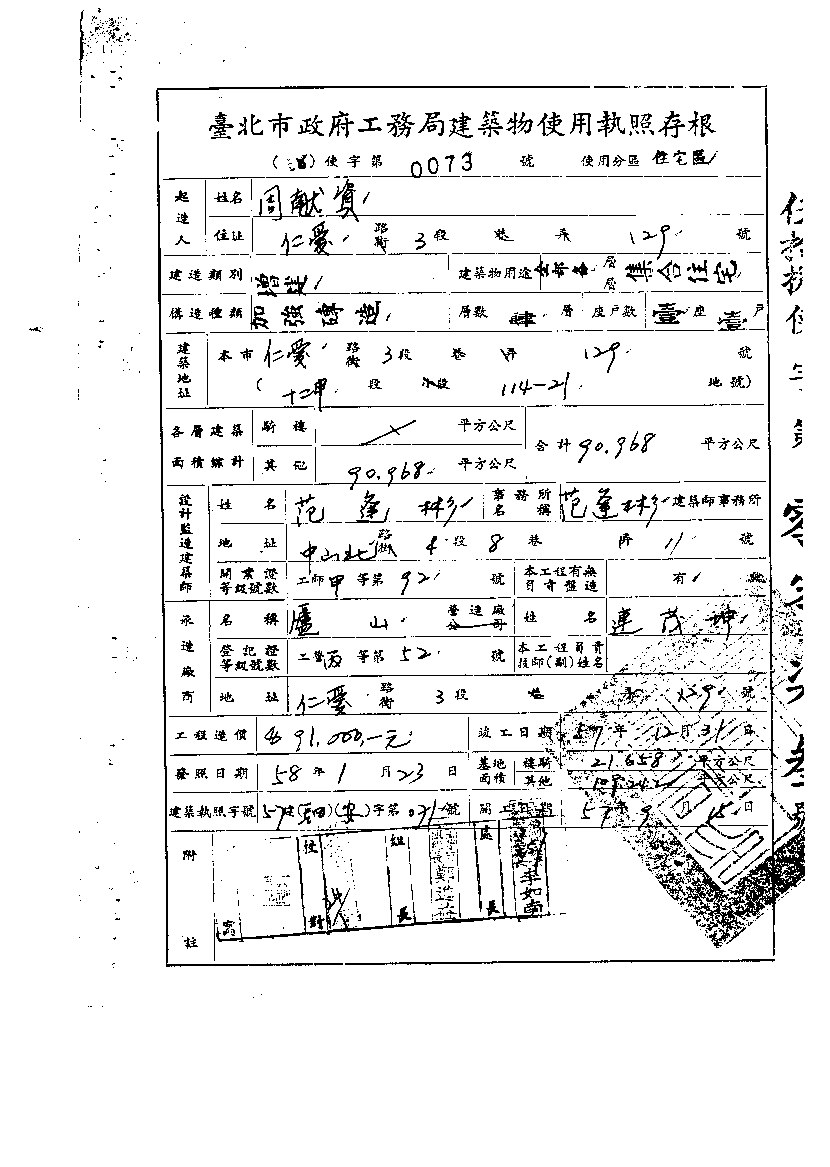 臺北市政府工務局建築物使用執照存根
使字第 0073 號 使用分區 住宅區
起造人 姓名 周献資
住址 仁愛 路街 3段 巷 弄 129 號
建造類別 增建 建築物用途 全部各層 集合住宅
構造種類 加強磚造 層數 肆 層 座戶數 壹座 壹戶
建築地址 本市 仁愛 路街 3段 巷 弄 129 號
( 十二甲 段 小段 114-21 地號)
各層建築面積總計 騎樓 平方公尺 合計 90.968 平方公尺
其他 90.968 平方公尺
設計監造建築師 姓名 范逢彬 事務所名稱 范逢彬 建築師事務所
地址 中山北 路街 4段 8巷 弄 11 號
開業證等級號數 工師甲等第 92 號 本工程有無負責監造 有
承造廠商 名稱 廬山 營造廠公司 姓名 連茂坤
登記證等級號數 工營丙等第 52 號 本工程負責技師(副)姓名
地址 仁愛 路街 3段 巷 弄 129 號
工程造價 91,000,-元 竣工日期 57年12月31日
發照日期 58年1月23日 基地面積 樓騎 21.658 平方公尺
其他 平方公尺
建築執照字號 57建(安)字第 071號 開工日期 57年9月15日
附註
組長 處長 李如南